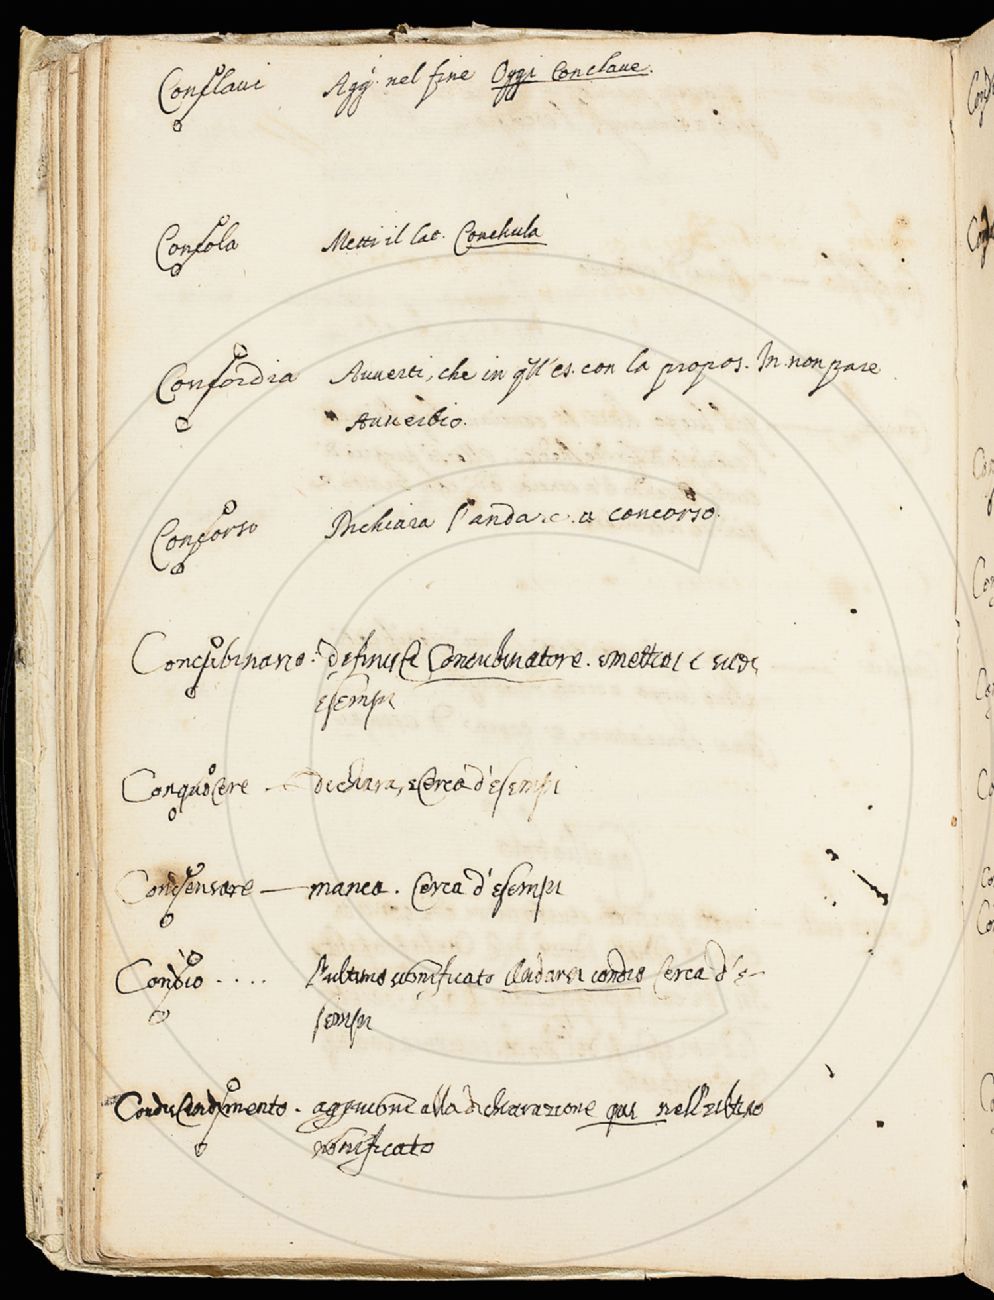 Conclavi Agg. nel fine Oggi Conclave.
Concola Metti il Lat. Conchula
Concordia Avverti, che in qll'es. con la propos. In non pare
Avverbio.
Concorso Dichiara l'andare a concorso.
Concubinario. definisci Concubinatore. e mettici i suoi
esempi
Conquocere dichiara, e Cerca d'esempi
Condensare — manca. Cerca d'esempi
Condio .... l'ultimo significato condio Cerca d'e-
sempi
Condiscendimento. aggiungi alla dichiarazione qui nell'ultimo
significato